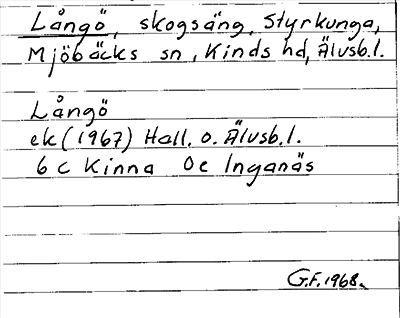 Långö, skogsäng, Styrkunga,
Mjöbäcks sn, Kinds hd, Älvsb.l.
Långö
ek (1967) Hall. o. Älvsb.l.
6 C Kinna 0c Inganäs
G.F. 1968.